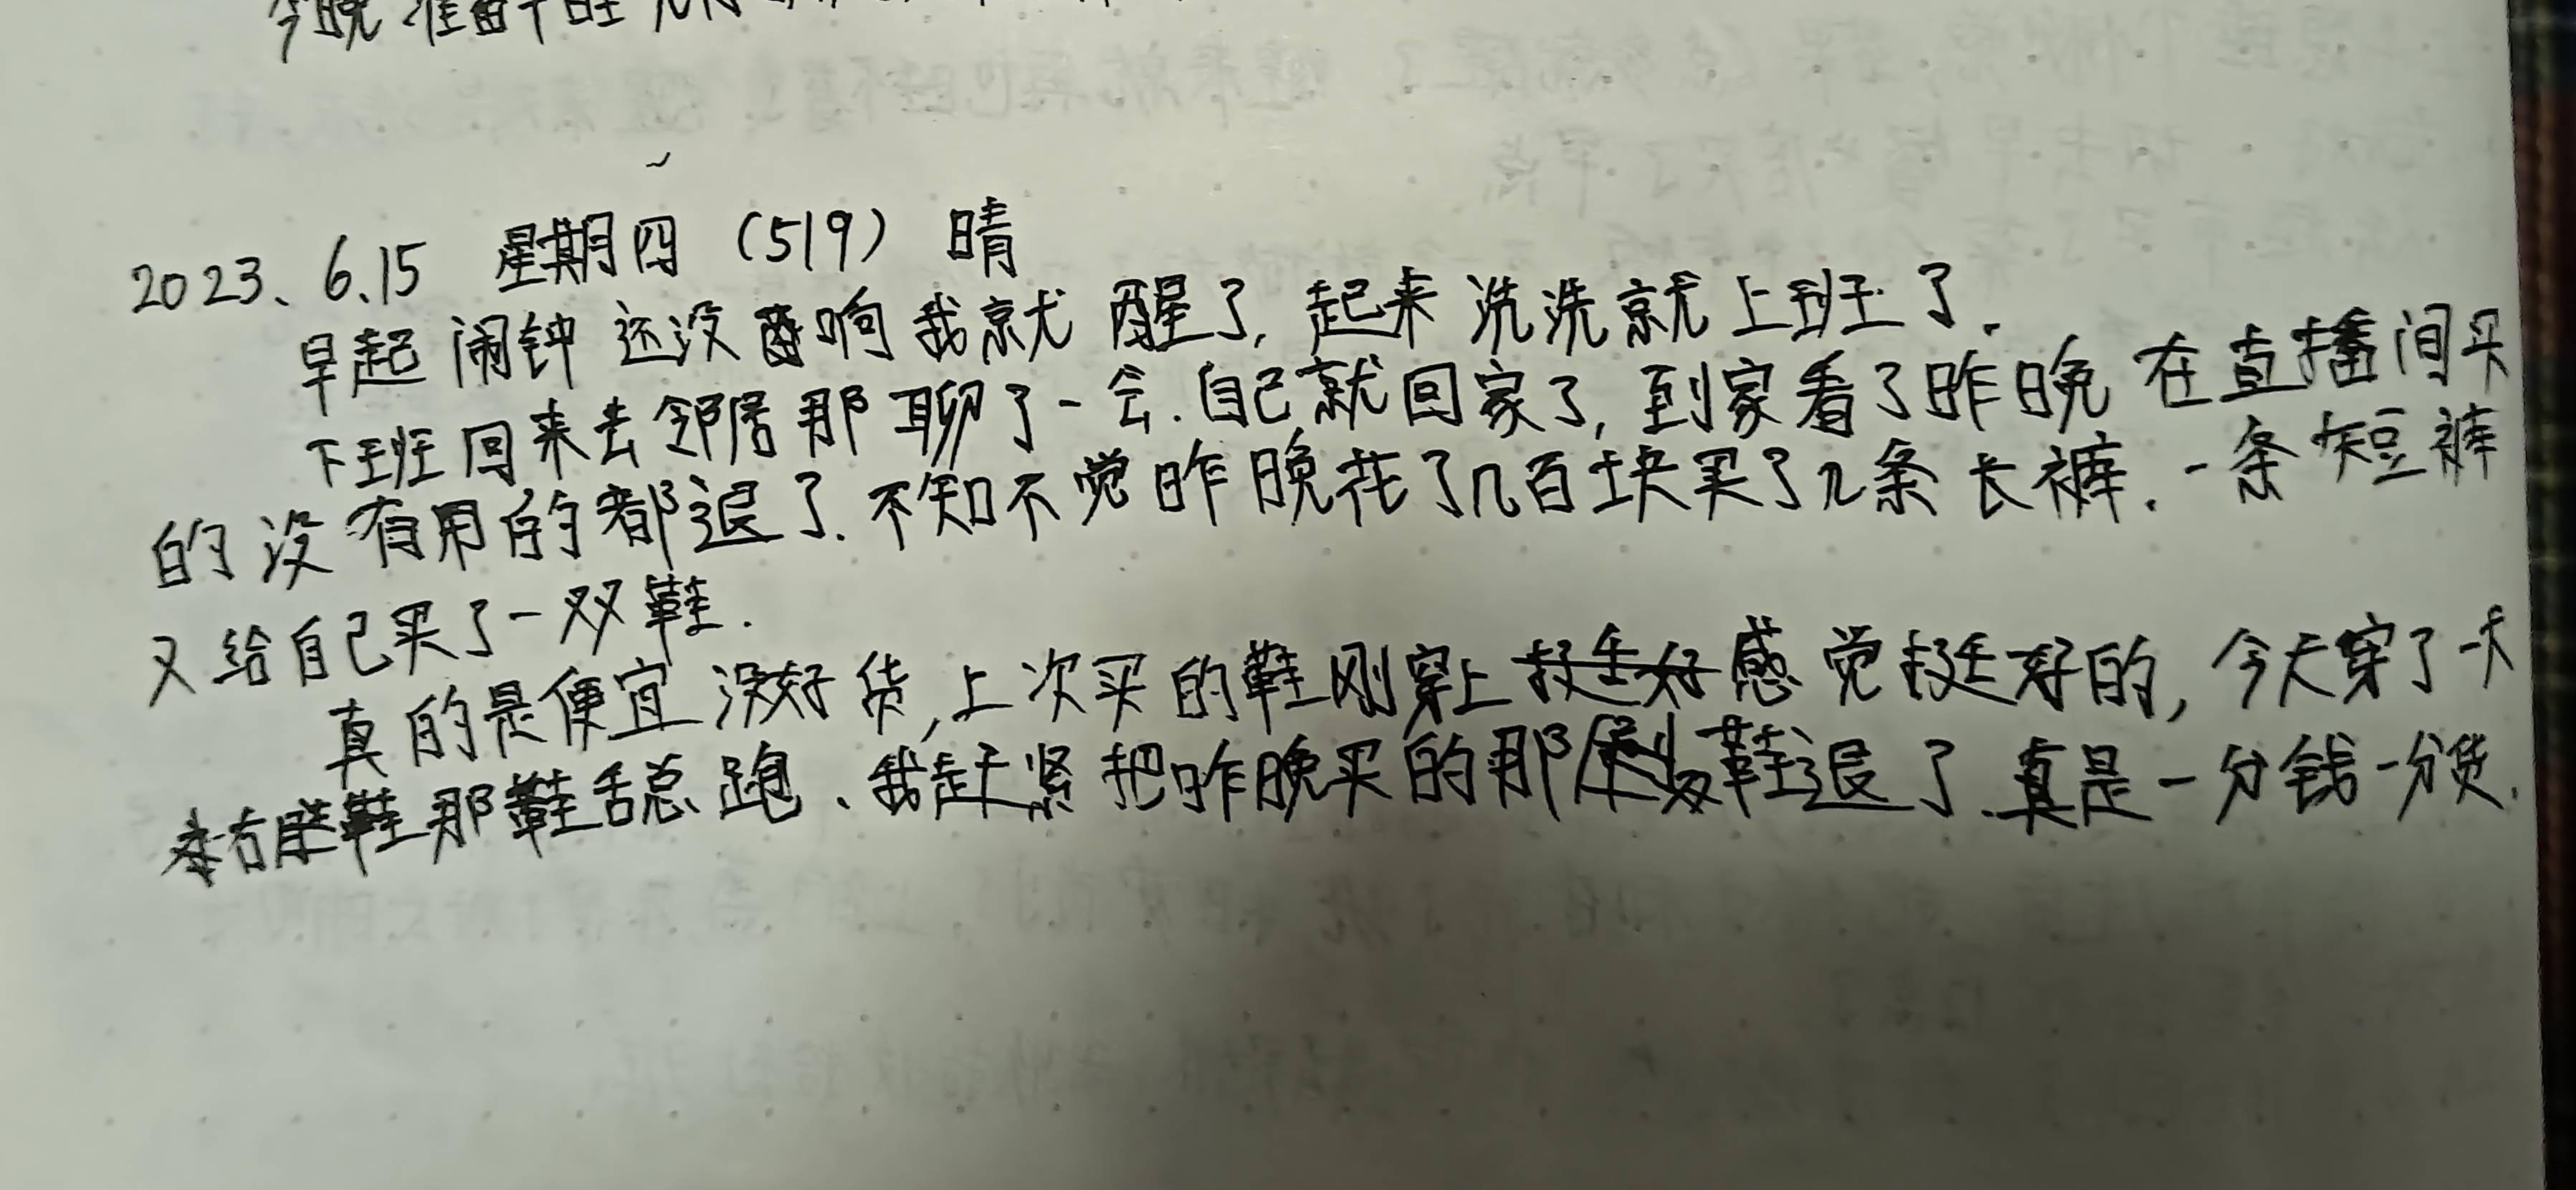 今晚准备早睡
2023、6.15 星期四 (519) 晴
早起闹钟还没响我就醒了,起来洗洗就上班了.
下班回来去邻居那聊了一会.自己就回家了,到家看了昨晚在直播间买
的没有用的都退了.不知不觉昨晚花了几百块买了几条长裤.一条短裤
又给自己买了一双鞋.
真的是便宜没好货,上次买的鞋刚穿上感觉挺好的,今天穿了一天
右脚鞋那鞋舌总跑、我赶紧把昨晚买的那双鞋退了.真是一分钱一分货.